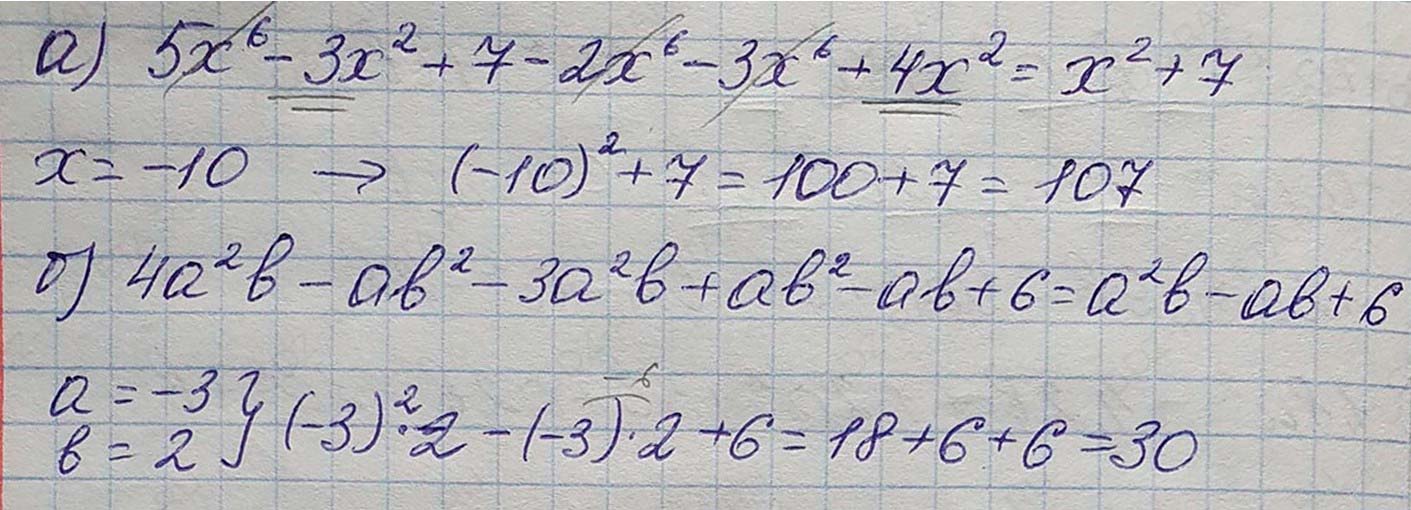 а) 5x⁶ - 3x² + 7 - 2x⁶ - 3x⁶ + 4x² = x² + 7
x = -10 → (-10)² + 7 = 100 + 7 = 107
б) 4a²b - ab² - 3a²b + ab² - ab + 6 = a²b - ab + 6
-6
a = -3
b = 2 } (-3)² · 2 - (-3) · 2 + 6 = 18 + 6 + 6 = 30